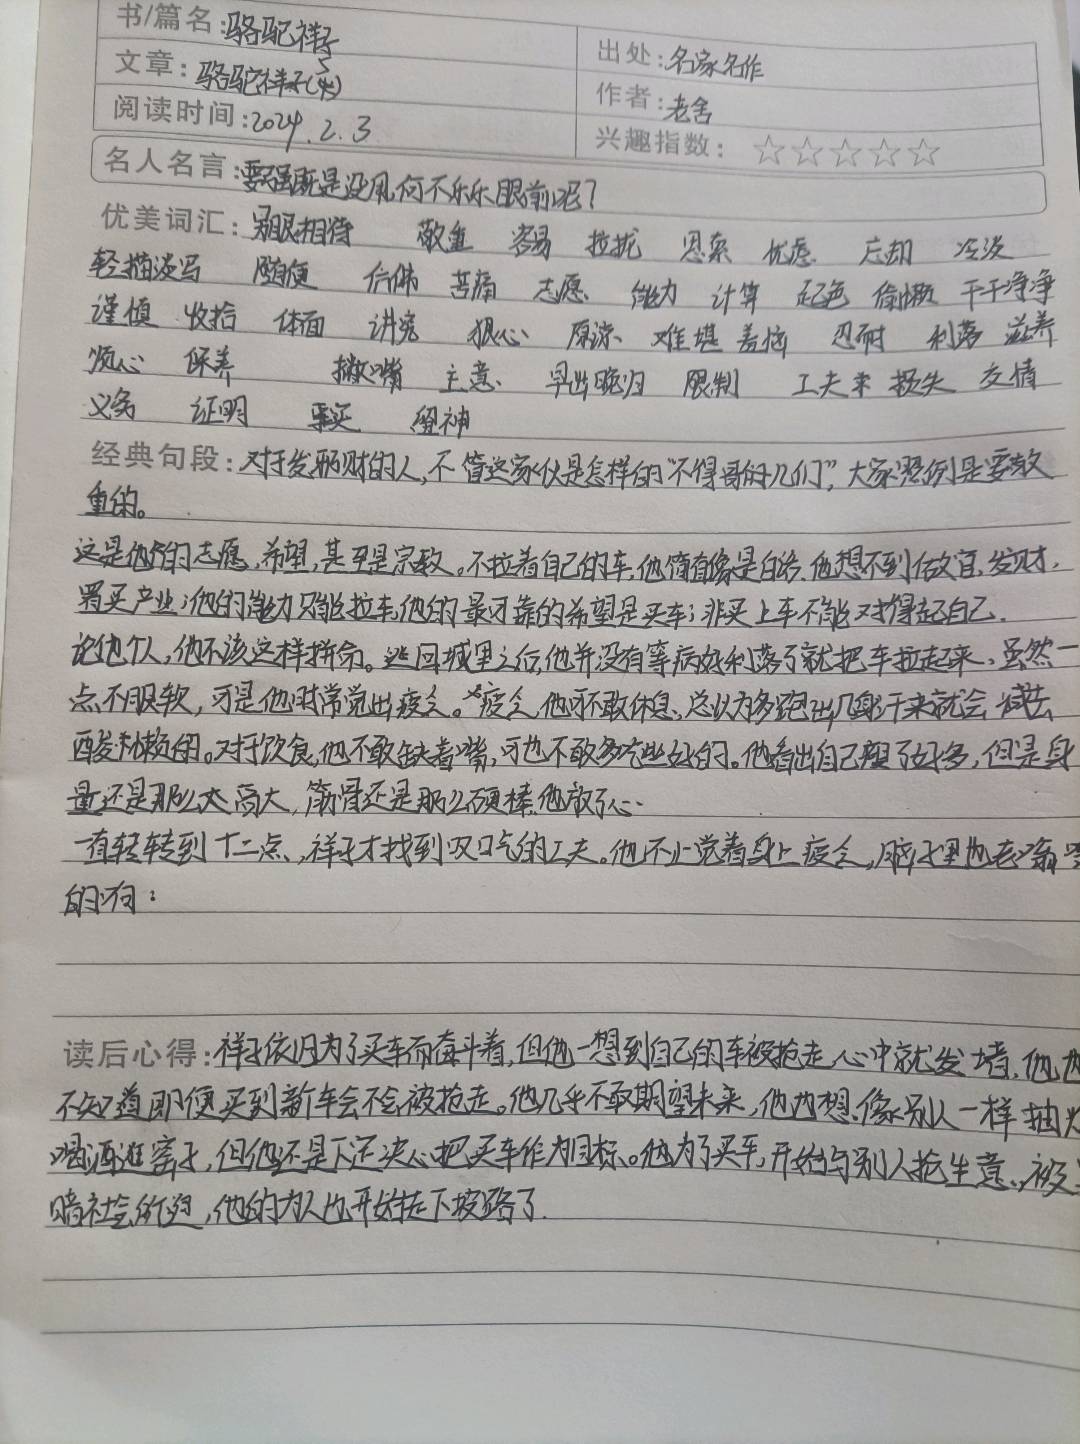 书/篇名:骆驼祥子
出处:名家名作
文章:骆驼祥子(5)
作者:老舍
阅读时间:2024.2.3
兴趣指数:☆☆☆☆☆
名人名言:要强既是没用,何不乐乐眼前呢?
优美词汇:另眼相待 敬重 容易 拉扰 思索 忧虑 忘却 冷淡
轻描淡写 随便 信佛 苦痛 志愿 能力 计算 起色 偷懒 干干净净
谨慎 收拾 体面 讲究 狠心 原谅 难堪 羞恼 忍耐 利落 滋养
烦心 保养 撇嘴 主意 早出晚归 限制 工夫来 损失 交情
义务 证明 零买 留神
经典句段:对于发邪财的人,不管这家伙是怎样的“不得哥们儿们”,大家照例是要敬
重的。
这是他的志愿,希望,甚至是宗教。不拉着自己的车,他简直像是白活。他想不到做官,发财,
置买产业;他的能力只能拉车,他的最可靠的希望是买车;非买上车不能对得起自己.
论他个人,他不该这样拼命。逃回城里之后,他并没有等病好利落了就把车拉起来,虽然一
点不服软,可是他时常觉出疲乏。疲乏,他可不敢休息,总以为多跑出几身汗来就会减去
酸懒的。对于饮食,他不敢缺着嘴,可也不敢多吃些好的。他看出自己瘦了好多,但是身
量还是那么高大,筋骨还是那么硬棒,他放了心.
一直转转到十二点,祥子才找到叹口气的工夫。他不止觉着身上疲乏,脑子里也老嗡嗡
的响:
读后心得:祥子依旧为了买车而奋斗着,但他一想到自己的车被抢走心中就发堵,他也
不知道即便买到新车会不会被抢走。他几乎不敢期望未来,他也想像别人一样抽
喝酒逛窑子,但他还是下定决心把买车作为目标。他为了买车,开始与别人抢生意,被
暗社会所迫,他的为人也开始走下坡路了.